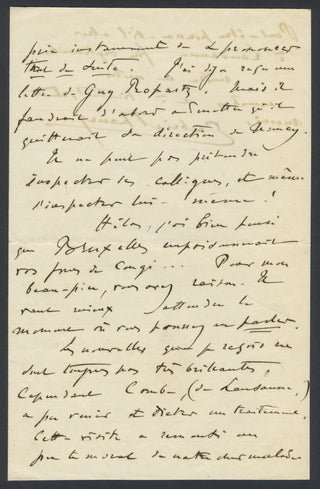 prie instamment de le prononcer
tout de suite. J'ai déjà reçu une
lettre de Guy Ropartz. Mais il
faudrait d'abord admettre qu'il
quitterait sa direction de Nancy.
Il ne peut pas prétendre
inspecter ses collègues, et même
s'inspecter lui-même !
Hélas, j'ai bien pensé
que Bruxelles emprisonnerait
vos jours de congé... Pour mon
beau-père, vous avez raison. Il
vaut mieux attendre le
moment où vous pourrez en parler.
Les nouvelles que je reçois ne
sont toujours pas très brillantes.
Cependant Combe, (de Lausanne,)
a pu venir et dicter un traitement.
Cette visite a remonté un
peu le moral de notre cher malade